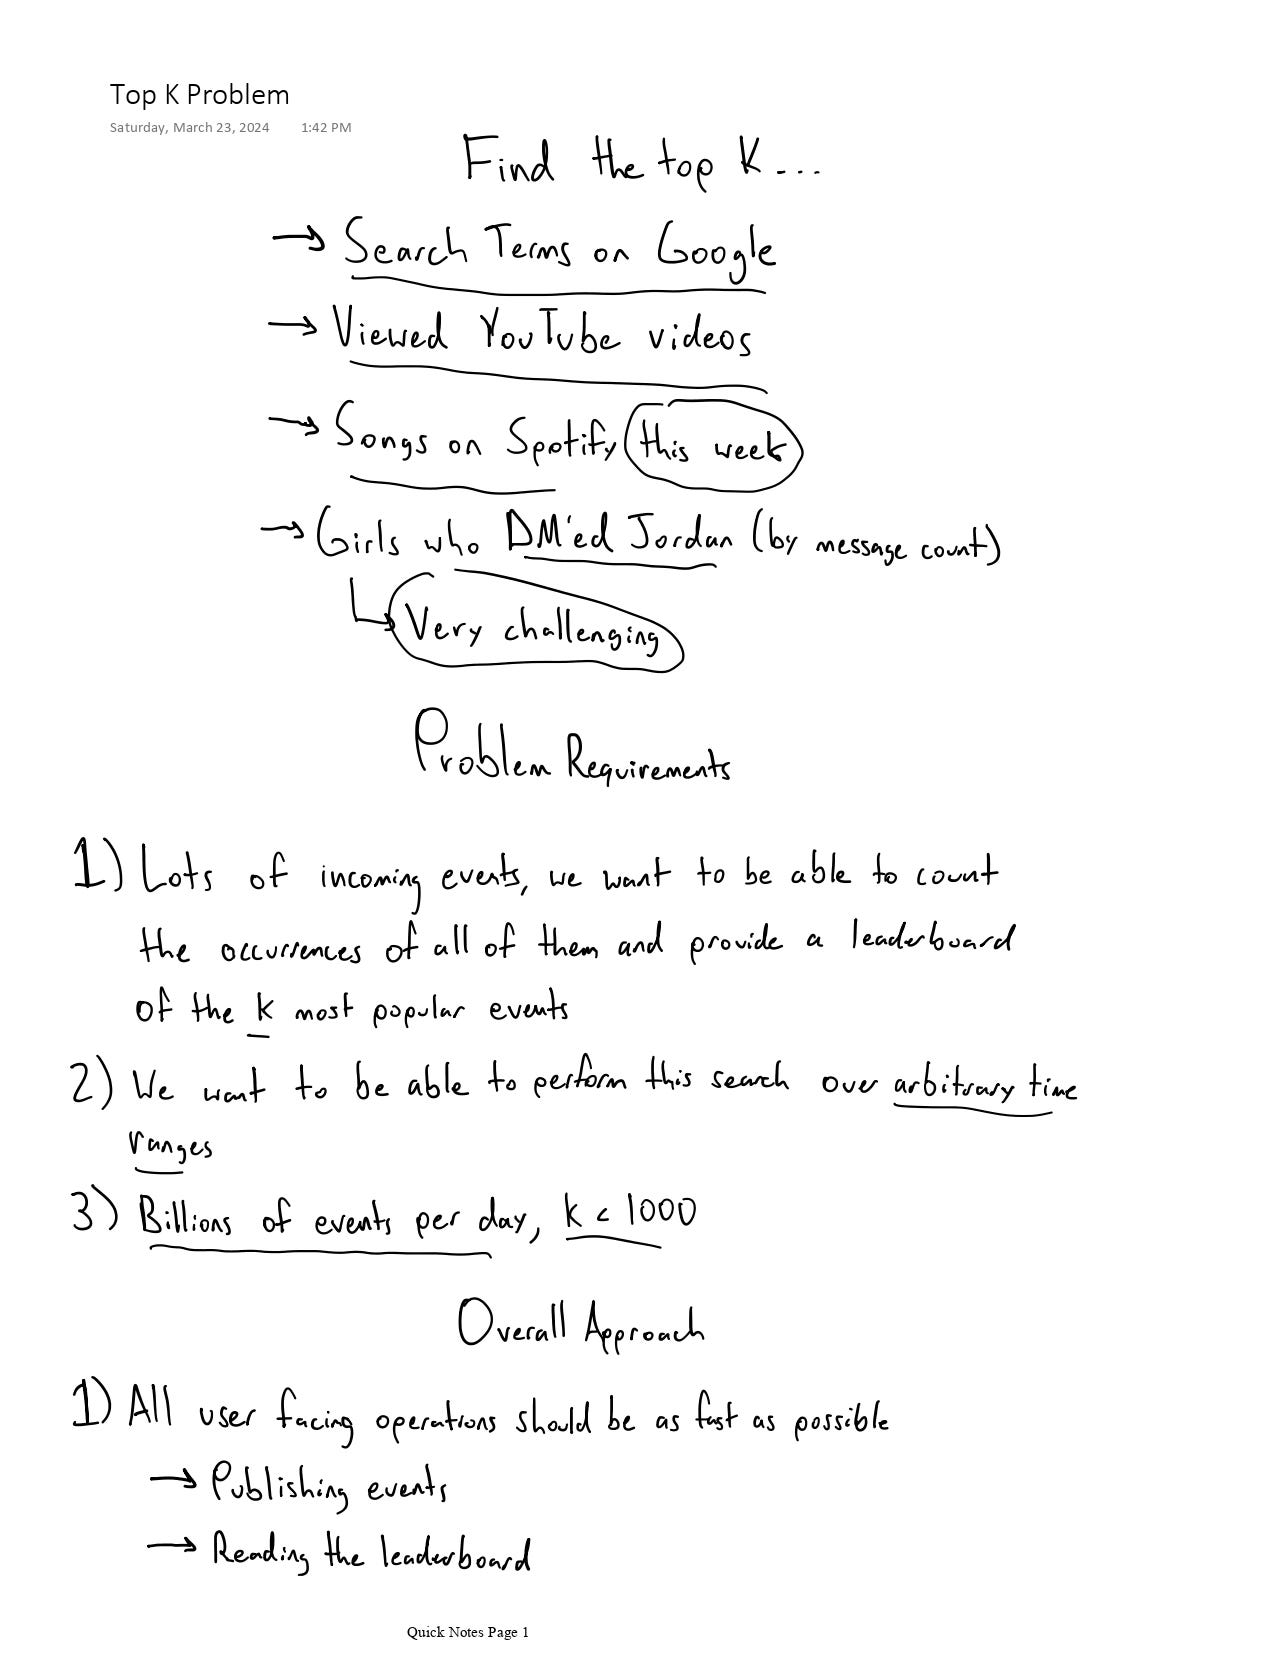 Top K Problem
Saturday, March 23, 2024 1:42 PM
Find the top K...
→ Search Terms on Google
→ Viewed YouTube videos
→ Songs on Spotify this week
→ Girls who DM'ed Jordan (by message count)
↳ Very challenging
Problem Requirements
1) Lots of incoming events, we want to be able to count
the occurrences of all of them and provide a leaderboard
of the k most popular events
2) We want to be able to perform this search over arbitrary time
ranges
3) Billions of events per day, k < 1000
Overall Approach
1) All user facing operations should be as fast as possible
→ Publishing events
→ Reading the leaderboard
Quick Notes Page 1